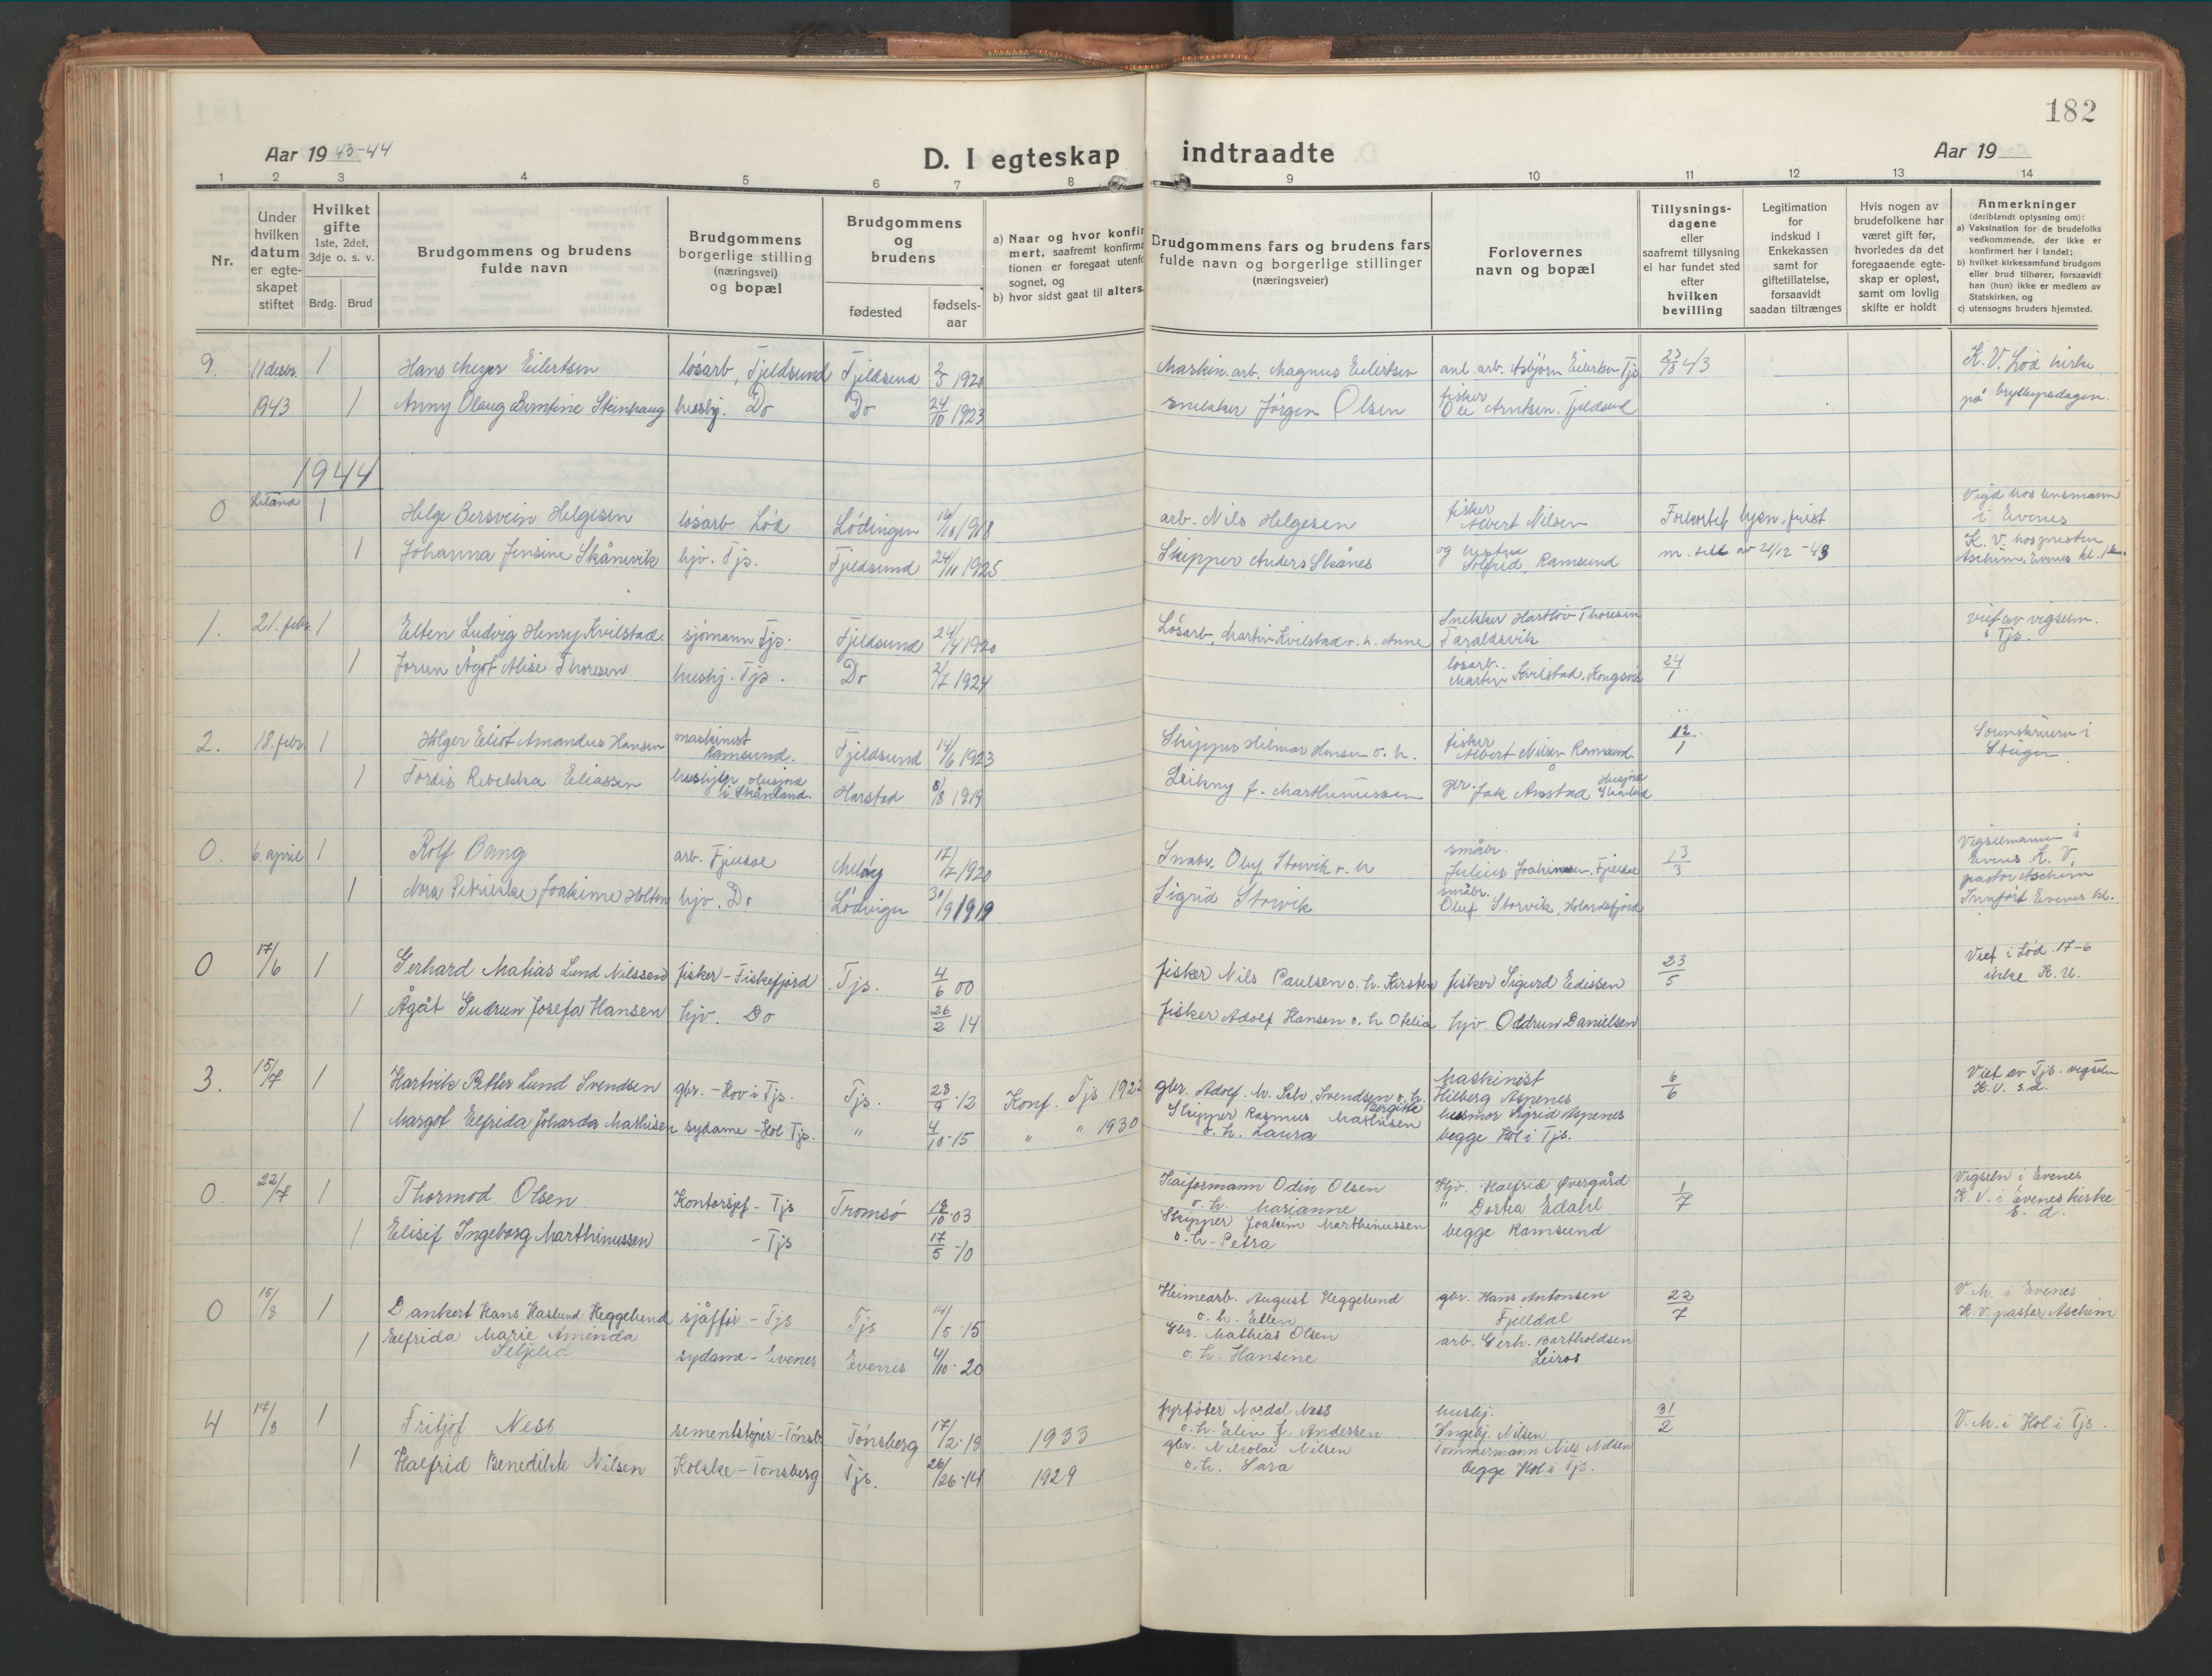 182
Aar 1943-44
D. I egteskap indtraadte
Aar 19
1 2 3 4 5 6 7 8 9 10 11 12 13 14
Nr.
Under hvilken datum er egteskapet stiftet
Hvilket gifte 1ste, 2det, 3dje o. s. v.
Brdg. Brud
Brudgommens og brudens fulde navn
Brudgommens borgerlige stilling (næringsvei) og bopæl
Brudgommens og brudens
fødested
fødselsaar
a) Naar og hvor konfir
mert, saafremt konfirma
tionen er foregaat utenfo
sognet, og
b) hvor sidst gaat til alters.
Brudgommens fars og brudens fars fulde navn og borgerlige stillinger (næringsveier)
Forlovernes navn og bopæl
Tillysningsdagene eller saafremt tillysning ei har fundet sted efter hvilken bevilling
Legitimation for indskud i Enkekassen samt for giftetillatelse, forsaavidt saadan tiltrænges
Hvis nogen av brudefolkene har været gift før, hvorledes da det foregaaende egteskap er opløst, samt om lovlig skifte er holdt
Anmerkninger
(deriblandt oplysning om):
a) Vaksination for de brudefolks vedkommende, der ikke er konfirmert her i landet;
b) hvilket kirkesamfund brudgom eller brud tilhører, forsaavidt han (hun) ikke er medlem av Statskirken, og
c) utensogns bruders hjemsted.
9. 11 desbr. 1 Hans Meyer Eilertsen løsarb, Tjeldsund Tjeldsund 2/5 1920 Maskin.arb. Magnus Eilertsen anl. arb. Asbjørn Eilertsen Tjs 23/10 43 K. V. Lød kirke
1943 1 Anny Olaug Berntine Steinhaug hushj. Do Do 24/10 1923 snekker Jørgen Olsen fisker Ole Arntsen. Tjeldsund på bryllupsdagen.
1944
0 1 Helge Bersvein Helgesen løsarb. Lød Lødingen 16/10 1918 arb. Nils Helgesen fisker Albert Nilsen Forkortet lysn. frist Vigd hos lensmann i Evenes
1 Johanna Jensine Skånevik hjv. Tjs. Tjeldsund 24/11 1925 Skipper Anders Skånes og hustru Solfrid, Ramsund m. till av 21/12 -43 K. V. hos presten Aschim, Evenes
1. 21. febr. 1 Elten Ludvig Henry Kvilstad sjømann Tjs. Tjeldsund 24/4 1920 Løsarb. Martin Kvilstad o. h. Anne Snekker Hartlov Thoresen Taraldsvik viet av vigselm. i Tjs.
1 Jorun Ågot Alise Thoresen hushj. Tjs. Do 2/7 1924 løsarb. Martin Kvilstad. Kongsvik 24/1
2. 18. febr. 1 Holger Eliot Amandus Hansen maskinist Ramsund. Tjeldsund 14/6 1923 Skipper Hilmar Hansen o. h. fisker Albert Nilsen Ramsund 12/1 Sorenskriveren i Steigen
1 Tordis Rebekka Eliassen hushjelp i Skånland. Harstad 8/8 1919 Leikny f. Marthinussen
0. 6. april 1 Rolf Bang arb. Fjeldal Meløy 17/7 1920 Småbr. Oluf Storvik o. h småbr. Julius Joakimsen. Fjeldal 13/3 Vigselmann i Evenes K. V.
1 Nora Petrikke Joakime Holten hjv. Do Lødingen 30/9 1919 Sigrid Storvik småbr. Oluf Storvik, pastor Aschim Innført Evenes kl.
0 17/6 1 Gerhard Matias Lund Nilssen fisker - Fiskefjord Tjs. 4/6 00 fisker Nils Paulsen o. h. Kirsten fisker Sigurd Edissen 23/5 Viet i Lød. 17-6 kirke K. V.
1 Ågåt Gudrun Josefa Hansen hjv. Do 26/2 14 fisker Adolf Hansen o. h. Otelia hjv. Oddrun Danielsen
3. 15/7 1 Hartvik Petter Lund Svendsen gbr. - Hov i Tjs. Tjs. 23/9 -12 Konf. Tjs 1922 gbr. Adolf. M. Salv. Svendsen o. h. Bergitte Maskinist Hilberg Aspenes 6/6 Viet av Tjs. vigselm K. V. s. d.
1 Margot Elfrida Joharda Mathisen sydame - Hol Tjs. " 4/10 -15 " " 1930 Skipper Rasmus Mathisen o. h. Laura husmor Sigrid Aspenes begge Hol i Tjs.
0. 22/7 1 Thormod Olsen Kontorsjef - Tjs Tromsø 12/10 -03 Kaiformann Odin Olsen o. h. Marianne Hjv. Halfrid Øvergård " Dorka Edahl 1/7 Vigselm i Evenes K. V. i Evenes kirke s. d.
1 Elisif Ingeborg Marthinussen - Tjs 17/5 -10 Skipper Joakim Marthinussen o. h. Petra begge Ramsund
0 15/8 1 Dankert Hans Haslund Heggelund sjåffør - Tjs Tjs 14/5 -15 Heimearb. August Heggelund o. h. Ellen gbr. Hans Antonsen Fjeldal 22/7 V. M. i Evenes K. V. pastor Aschim
1 Elfrida Marie Aminda Seljelid sydame - Evenes Evenes 4/10 -20 Gbr. Mathias Olsen o. h. Hansine arb. Gerh. Bartholdsen Leiros
4 17/8 1 Fritjof Ness sementstøper - Tønsb. Tønsberg 17/2 -18 1933 fyrbøter Nordal Ness o. h. Elin f. Andersen hushj. Ingebj. Nilsen 31/2 V. M. i Hol i Tjs.
1 Halfrid Benedikte Nilsen Kokke - Tønsberg Tjs. 26/26 -14 1929 gbr. Nikolai Nilsen o. h. Sara Tømmermann Nils Nilsen begge Hol i Tjs.